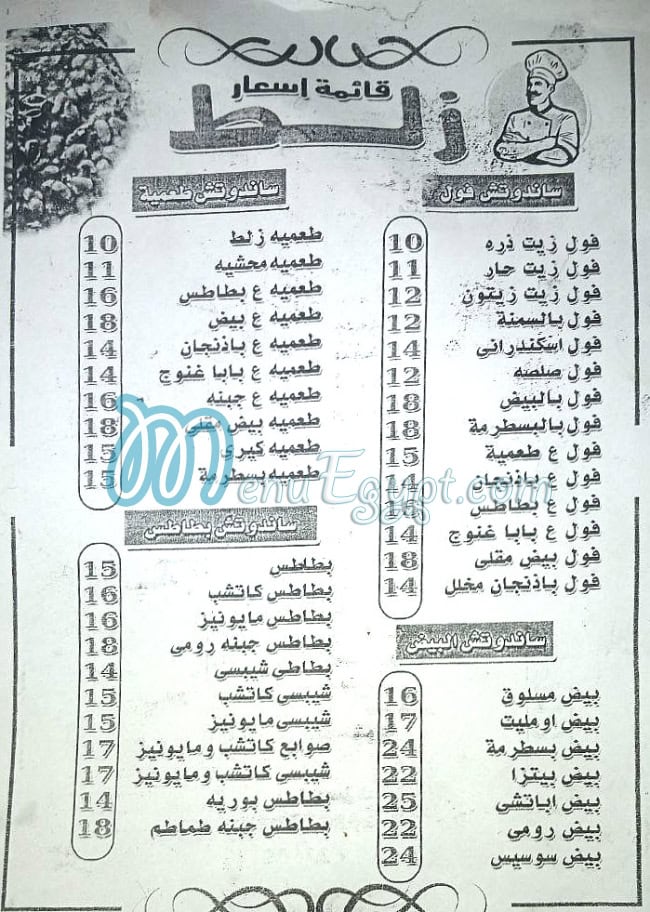 قائمة إسعار
زلط
ساندوتش فول
فول زيت ذره 10
فول زيت حار 11
فول زيت زيتون 12
فول بالسمنة 12
فول اسكندرانى 14
فول صلصه 12
فول بالبيض 18
فول بالبسطرمة 18
فول ع طعمية 15
فول ع باذنجان 14
فول ع بطاطس 16
فول ع بابا غنوج 14
فول بيض مقلى 18
فول باذنجان مخلل 14
ساندوتش البيض
بيض مسلوق 16
بيض اومليت 17
بيض بسطرمة 24
بيض بيتزا 22
بيض اباتشى 25
بيض رومى 22
بيض سوسيس 24
ساندوتش طعمية
طعميه زلط 10
طعميه محشيه 11
طعميه ع بطاطس 16
طعميه ع بيض 18
طعميه ع باذنجان 14
طعميه ع بابا غنوج 14
طعميه ع جبنه 16
طعميه بيض مقلى 18
طعميه كيرى 15
طعميه بسطرمة 15
ساندوتش بطاطس
بطاطس 15
بطاطس كاتشب 16
بطاطس مايونيز 16
بطاطس جبنه رومى 18
بطاطى شيبسى 14
شيبسى كاتشب 15
شيبسى مايونيز 15
صوابع كاتشب ومايونيز 17
شيبسى كاتشب ومايونيز 17
بطاطس بوريه 14
بطاطس جبنه طماطم 18
MenuEgypt.com